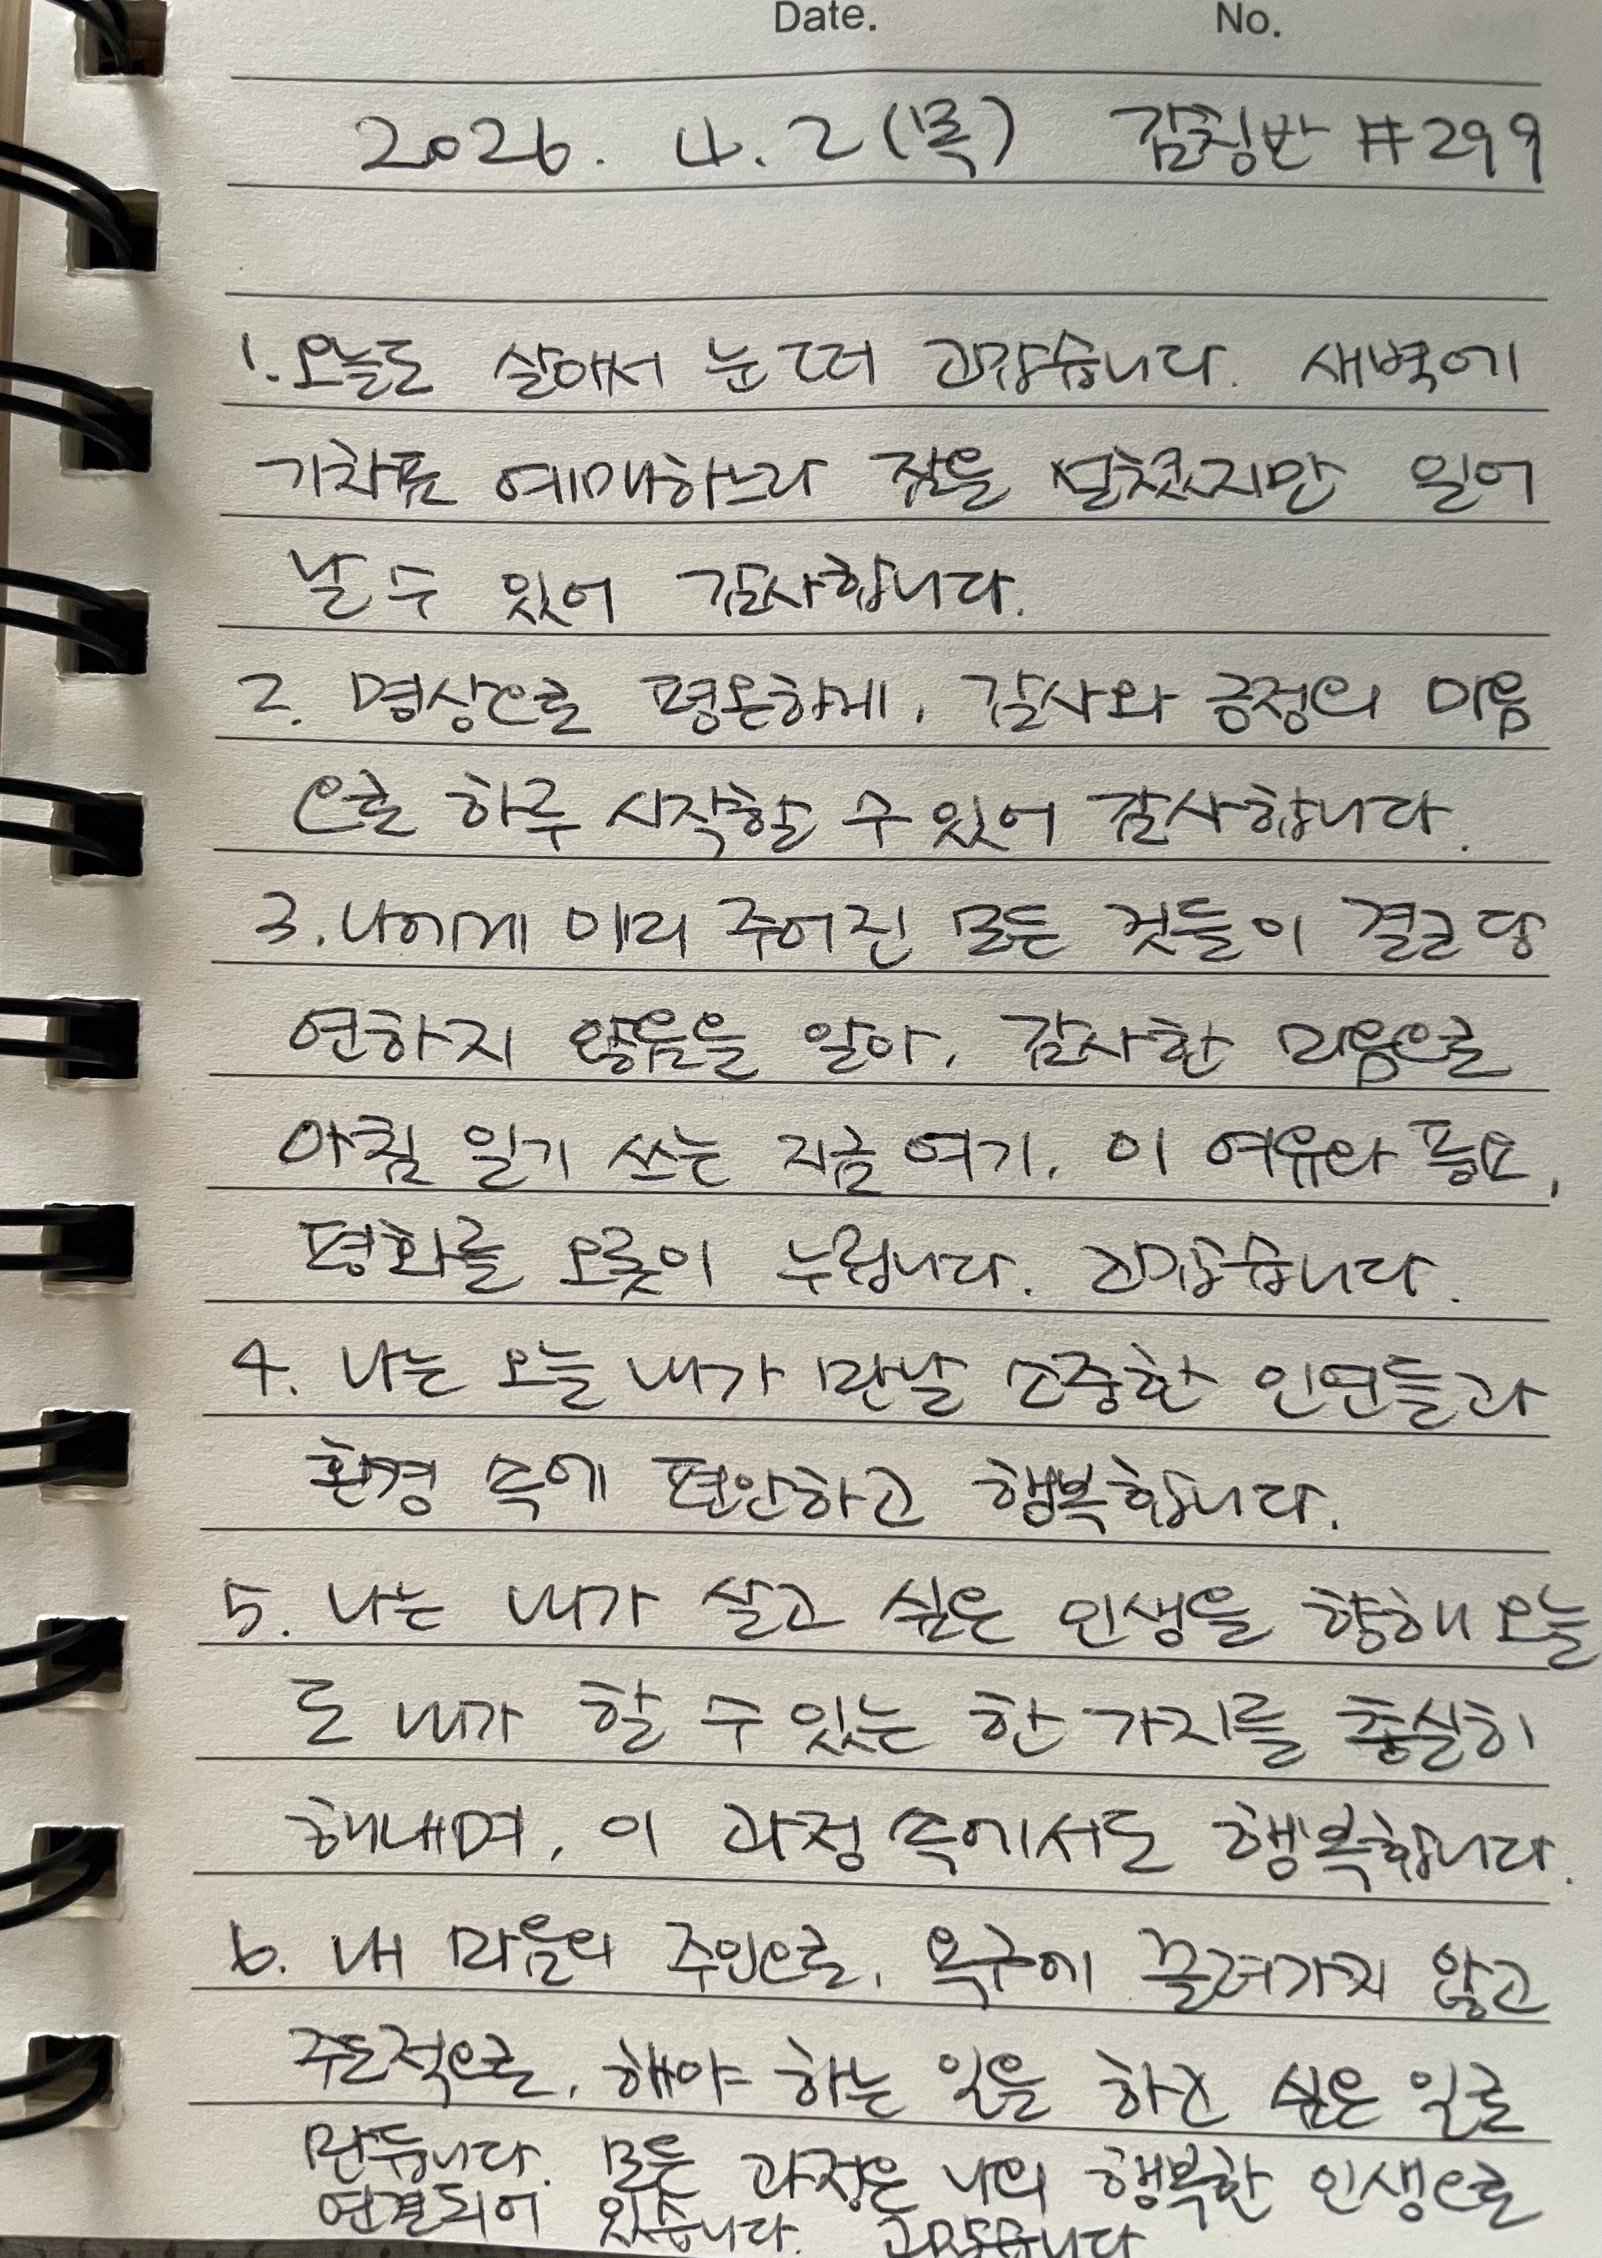 Date. No.
2026. 4. 2 (목) 감칭반 #299
1. 오늘도 살아서 눈떠 고맙습니다. 새벽에
기차표 예매하느라 잠을 설쳤지만 일어
날 수 있어 감사합니다.
2. 명상으로 평온하게, 감사와 긍정의 마음
으로 하루 시작할 수 있어 감사합니다.
3. 나에게 이미 주어진 모든 것들이 결코 당
연하지 않음을 알아, 감사한 마음으로
아침 일기 쓰는 지금 여기, 이 여유와 풍요,
평화를 오롯이 누립니다. 고맙습니다.
4. 나는 오늘 내가 만날 소중한 인연들과
환경 속에 편안하고 행복합니다.
5. 나는 내가 살고 싶은 인생을 향해 오늘
도 내가 할 수 있는 한 가지를 충실히
해내며, 이 과정 속에서도 행복합니다.
6. 내 마음의 주인으로, 욕구에 끌려가지 않고
주도적으로, 해야 하는 일을 하고 싶은 일로
만듭니다. 모든 과정은 나의 행복한 인생으로
연결되어 있습니다. 고맙습니다